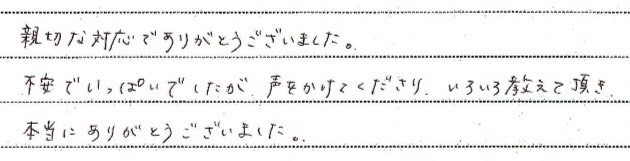 親切な対応でありがとうございました。
不安でいっぱいでしたが、声をかけてくださり、いろいろ教えて頂き、
本当にありがとうございました。